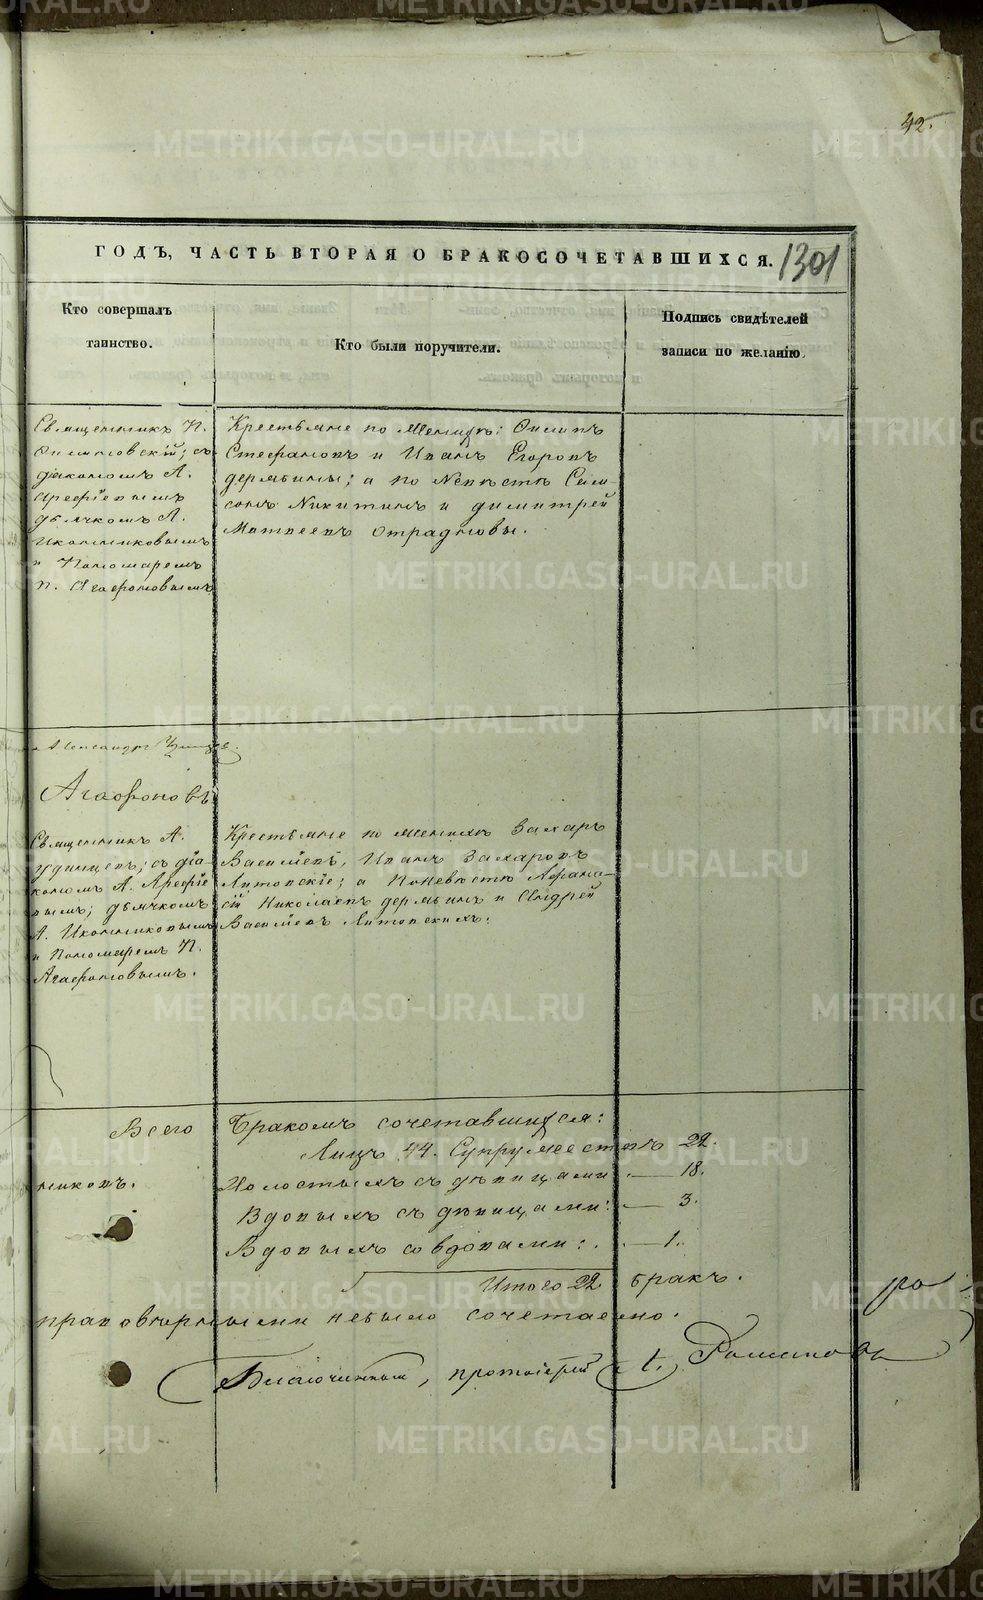 42.
ГОДЪ, ЧАСТЬ ВТОРАЯ О БРАКОСОЧЕТАВШИХСЯ.
1301
Кто совершалъ
таинство.
Кто были поручители.
Подпись свидѣтелей
записи по желанію.
Священникъ П.
съ
діакономъ А.
Арефіевымъ
дьячкомъ А.
Иконниковымъ
и Пономаремъ
П. Агафоновымъ
Крестьяне по Женихѣ: Филипъ
Стефановъ и Иванъ Егоровъ
дермвины; а по Невѣстѣ Сам-
сонъ Никитинъ и димитрей
Матвеевъ Отрадновы.
Александръ
Агафоновъ
Священникъ А.
Удинцевъ; съ діа-
кономъ А. Арефіе-
вымъ; дьячкомъ
А. Иконниковымъ
и Пономаремъ П.
Агафоновымъ.
Крестьяне по женихѣ Захаръ
Василіевъ, Иванъ Захаровъ
Литовскіе; а Поневѣстѣ Афана-
сій Николаевъ дермвинъ и Андрей
Василіевъ Литовскихъ.
Всего Бракомъ сочетавшихся:
Лицъ 44. Супружествъ 22.
никовъ.
Холостыхъ съ дѣвицами — 18.
Вдовыхъ съ дѣвицами: — 3.
Вдовыхъ со вдовами: — 1.
Итого 22 бракъ.
православными небыло сочетаено.
Благочинный, протоіерей
METRIKI.GASO-URAL.RU